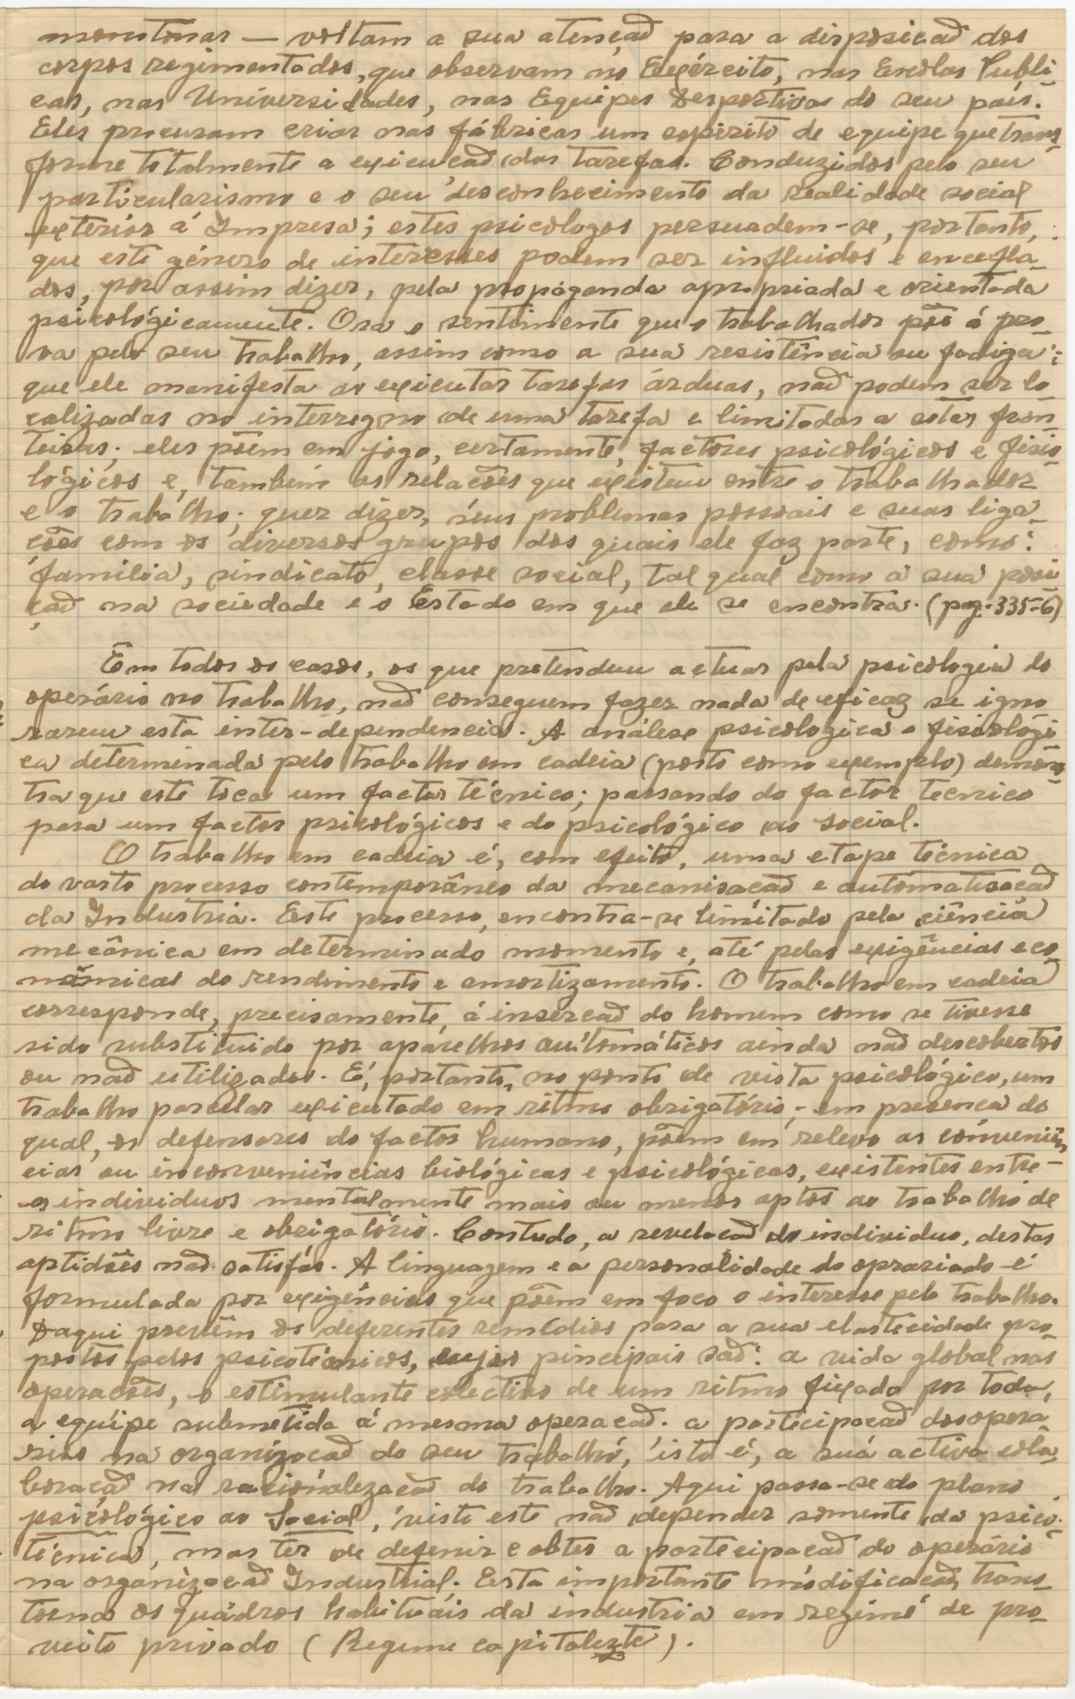 monótonas — voltam a sua atençaõ para a disposicaõ dos
corpos regimentados, que observam no Exército, nas Escolas Públi-
cas, nas Universidades, nas Equipes Desportivas do seu país.
Eles procuram criar nas fábricas um espirito de equipe que trans-
forme totalmente a exicucaõ das tarefas. Conduzidos pelo seu
particularismo e o seu desconhecimento da realidade social
exterior á Impresa; estes psicologos persuadem-se, portanto,
que este género de interesses podem ser influidos e
dos, por assim dizer, pela propaganda apropriada e orientada
psicológicamente. Ora o sentimento que o trabalhador põe á pro-
va pelo seu trabalho, assim como a sua resistência ou fadiga;
que ele manifesta ao exicutar tarefas árduas, naõ podem ser lo-
calizadas no interregno de uma tarefa e limitadas a estas fron-
teiras; eles põem em jogo, certamente, factores psicológicos e fisio-
lógicos e, também as relacões que existem entre o trabalhador
e o trabalho; quer dizer, seus problemas pessoais e suas liga-
cões com os diversos grupos dos quais ele faz parte, como:
família, sindicato, classe social, tal qual como a sua posi-
çaõ na sociedade e o Estado em que ele se encontra. (pag. 335-6)
Em todos os casos, os que pretendem actuar pela psicologia do
operário no trabalho, naõ conseguem fazer nada de eficaz se igno
rarem esta inter-dependencia. A análese psicologica e fisiológi
ca determinada pelo trabalho em cadeia (posto como exemplo) demons-
tra que este toca um factor técnico; passando do factor tecnico
para um factor psicológicos e do psicológico ao social.
O trabalho em cadeia é, com efeito, uma etape técnica
do vasto processo contemporâneo da mecanisacaõ e automatisacaõ
da Industria. Este processo, encontra-se limitado pela ciência
mecânica em determinado momento e, até pelas exigências eco-
nómicas do rendimento e amortizamento. O trabalho em cadeia
corresponde, precisamente, á insercaõ do homem como se tivesse
sido substituido por aparelhos automáticos ainda naõ descobertos
ou naõ utilizados. É, portanto, no ponto de vista psicológico, um
trabalho parcelar exicutado em ritmo obrigatório, - em presenca do
qual, os defensores do factor humano, põem em relevo as conveniên
cias ou inconveniências biológicas e psicológicas, existentes entre-
os individuos mentalmente mais ou menos aptos ao trabalho de
ritmo livre e obrigatório. Contudo, a revelacaõ do individuo, destas
aptidões naõ satisfás. A linguagem e a personalidade do oprariado é
formulada por exigências que põem em foco o interesse pelo trabalho.
Daqui provêm os deferentes remédios para a sua elastecidade pro-
postos pelos psicotécnicos, cujos pincipais saõ: a vida global nas
operacões, o estimulante colectivo de um ritmo fixado por toda,
a equipe submetida á mesma operacaõ. a participacaõ dos opera-
rios na organizacaõ do seu trabalho, isto é, a sua activa cola-
boracaõ na racionalezacaõ do trabalho. Aqui passa-se do plano
psicológico ao Social, visto este naõ depender somente da psico-
técnica, mas ter de defenir e obter a partecipacaõ do operário
na organizacaõ Industrial. Esta importante modificacaõ, trans-
torna os quadros habituais da industria em regime de pro-
veito privado (Regime capitalezte).